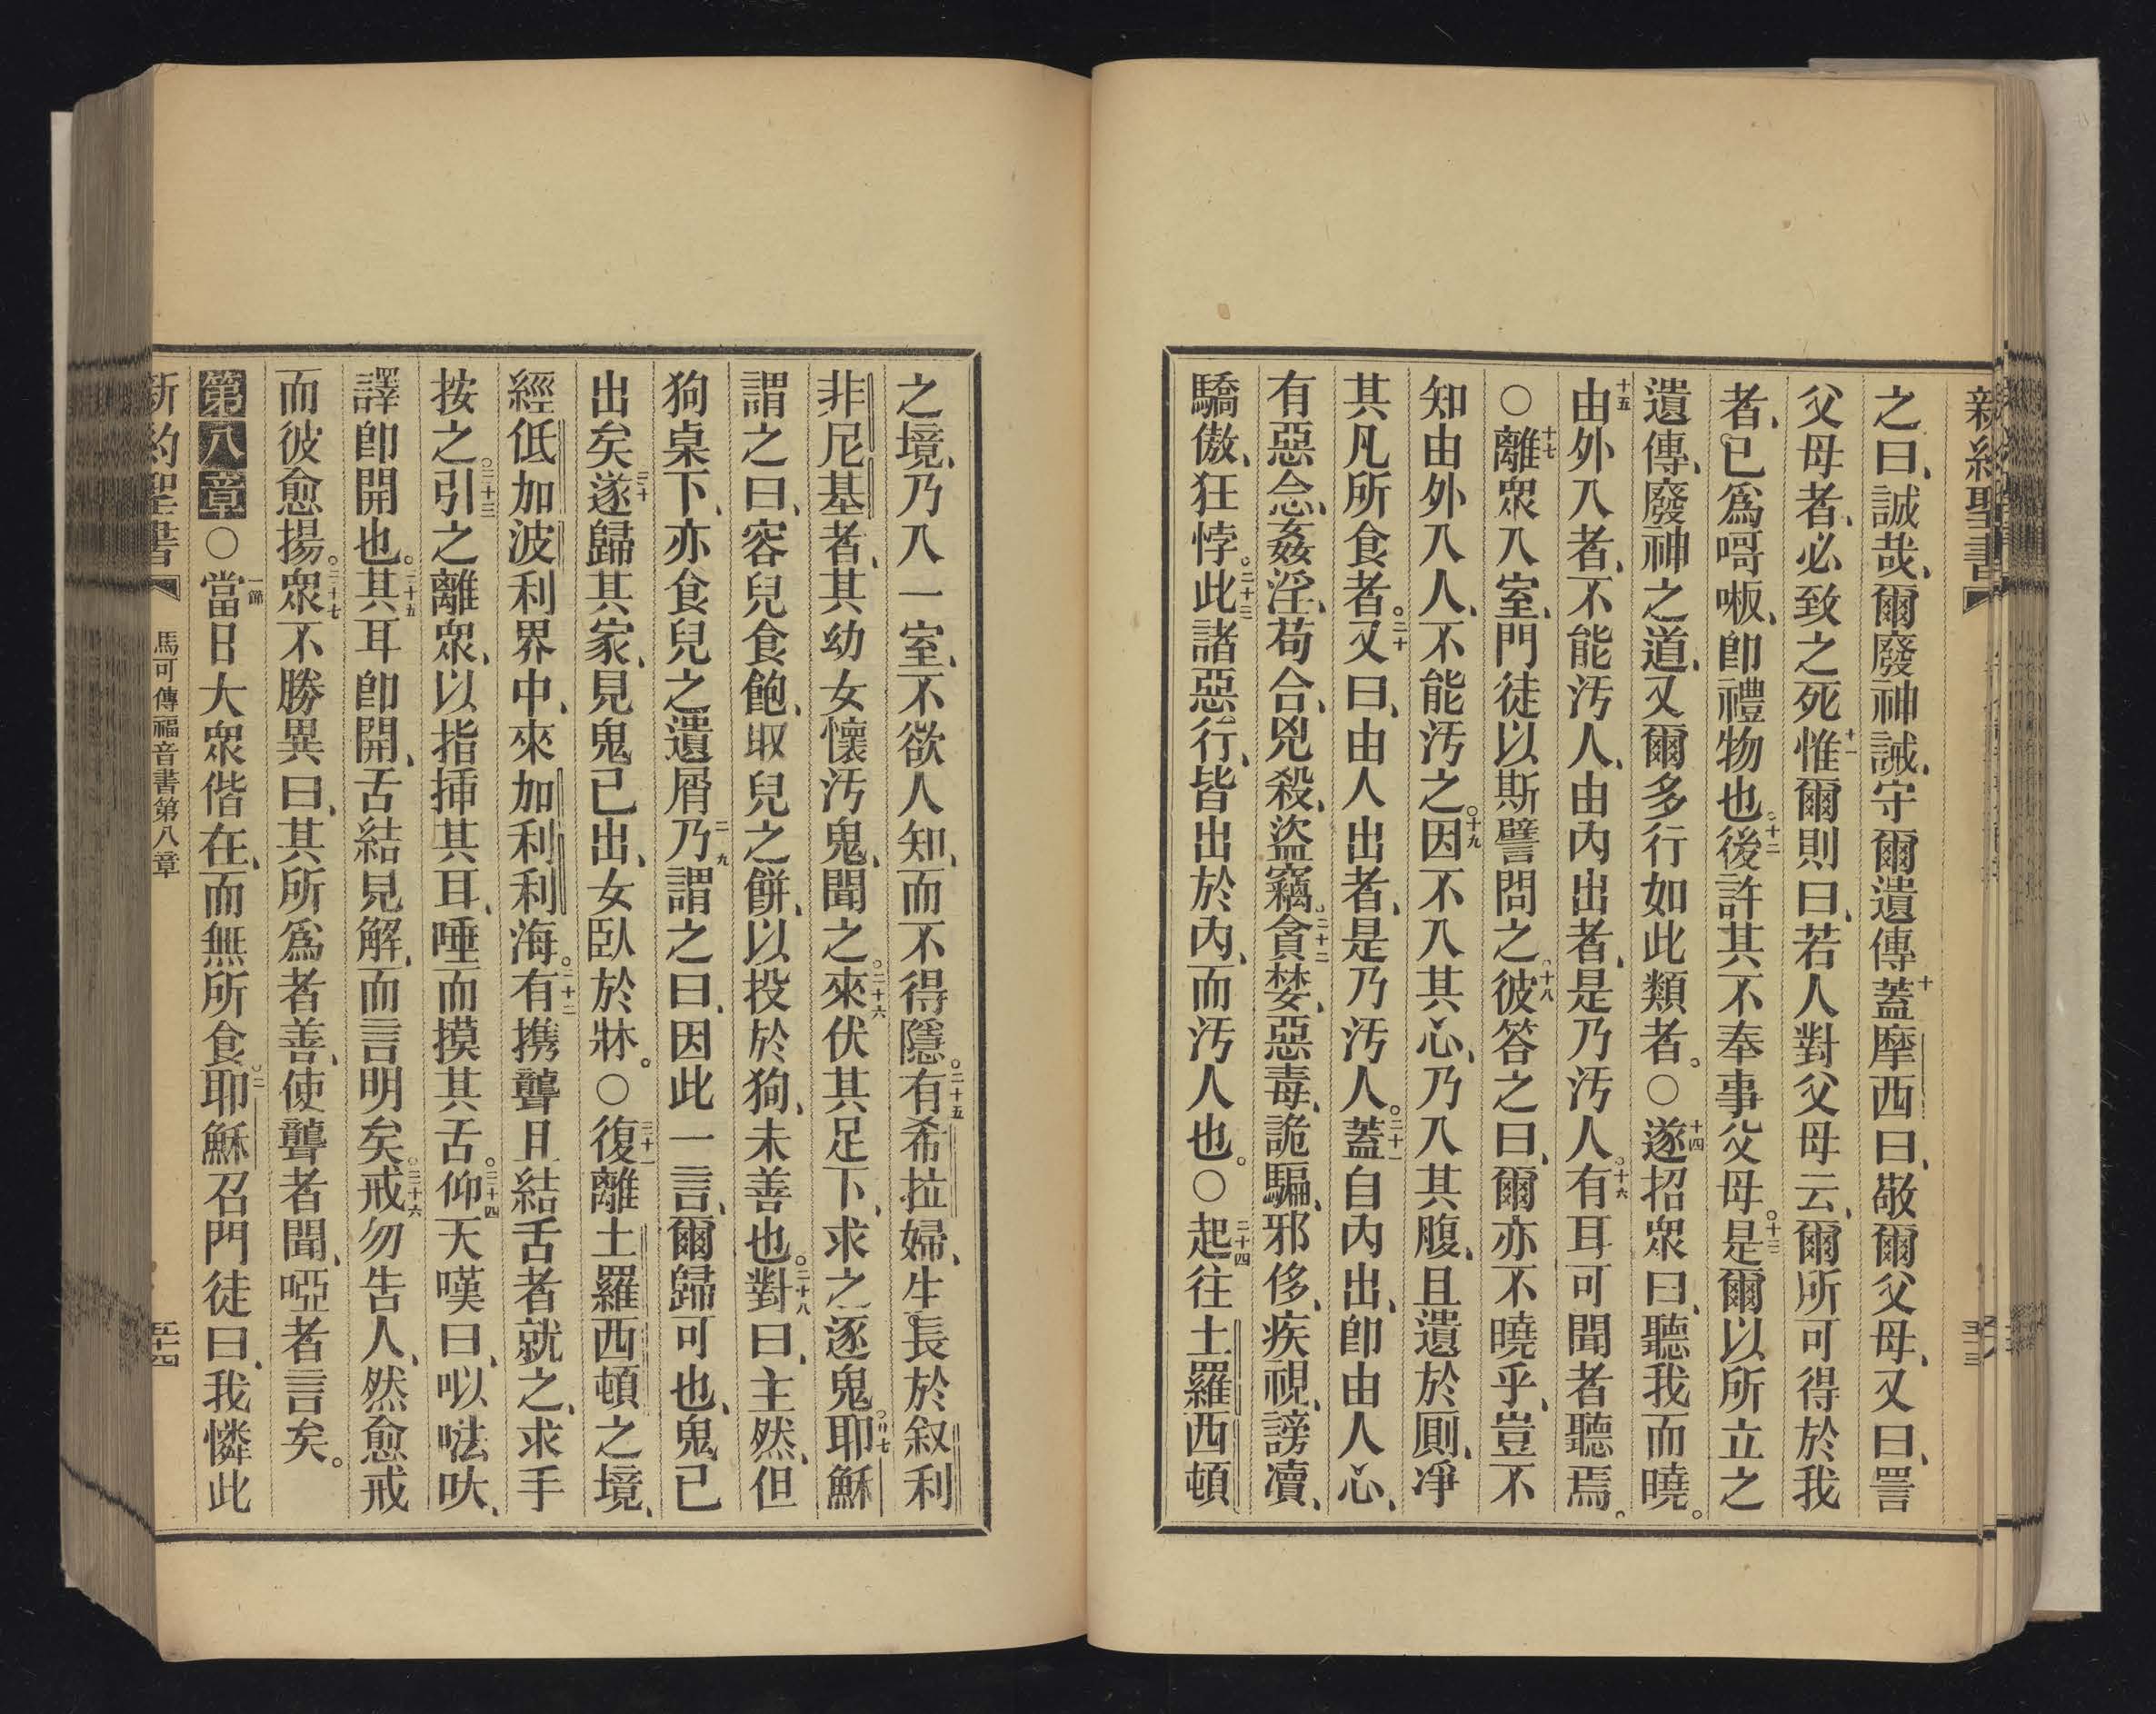 新約聖書
之曰、誠哉、爾廢神誡、守爾遺傳十蓋摩西曰、敬爾父母、又曰、詈
父母者、必致之死十一惟爾則曰、若人對父母云、爾所可得於我
者、已爲哥㘺、卽禮物也。十二後許其不奉事父母。十三是爾以所立之
遺傳、廢神之道、又爾多行如此類者。○十四遂招眾曰、聽我而曉。
十五由外入者、不能汚人、由內出者、是乃汚人。十六有耳可聞者聽焉。
○十七離眾入室、門徒以斯譬問之。十八彼答之曰、爾亦不曉乎、豈不
知由外入人、不能汚之。十九因不入其心、乃入其腹、且遺於厠、凈
其凡所食者。二十又曰、由人出者、是乃汚人。二十一蓋自內出、卽由人心、
有惡念、姦淫、苟合、兇殺、盜竊。二十二貪婪、惡毒、詭騙、邪侈、疾視、謗凟、
驕傲、狂悖。二十三此諸惡行、皆出於內、而汚人也。○二十四起往土羅西頓
之境、乃入一室、不欲人知、而不得隱。二十五有希拉婦、生長於叙利
非尼基者、其幼女懷汚鬼、聞之。二十六來伏其足下、求之逐鬼。廿七耶穌
謂之曰、容兒食飽、取兒之餅、以投於狗、未善也。二十八對曰、主然、但
狗桌下、亦食兒之遺屑二九乃謂之曰、因此一言、爾歸可也、鬼已
出矣三十遂歸其家、見鬼已出、女臥於牀。○三十一復離土羅西頓之境、
經低加波利界中、來加利利海。三十二有携聾且結舌者就之、求手
按之。三十三引之離眾、以指揷其耳、唾而摸其舌。三十四仰天嘆曰、㕥㗁呔、
譯卽開也。三十五其耳卽開、舌結見解、而言明矣。三十六戒勿告人、然愈戒
而彼愈揚。三十七眾不勝異曰、其所爲者善、使聾者聞、啞者言矣。
第八章○一節當日大眾偕在、而無所食。二耶穌召門徒曰、我憐此
新約聖書 馬可傳福音書第八章 五十四